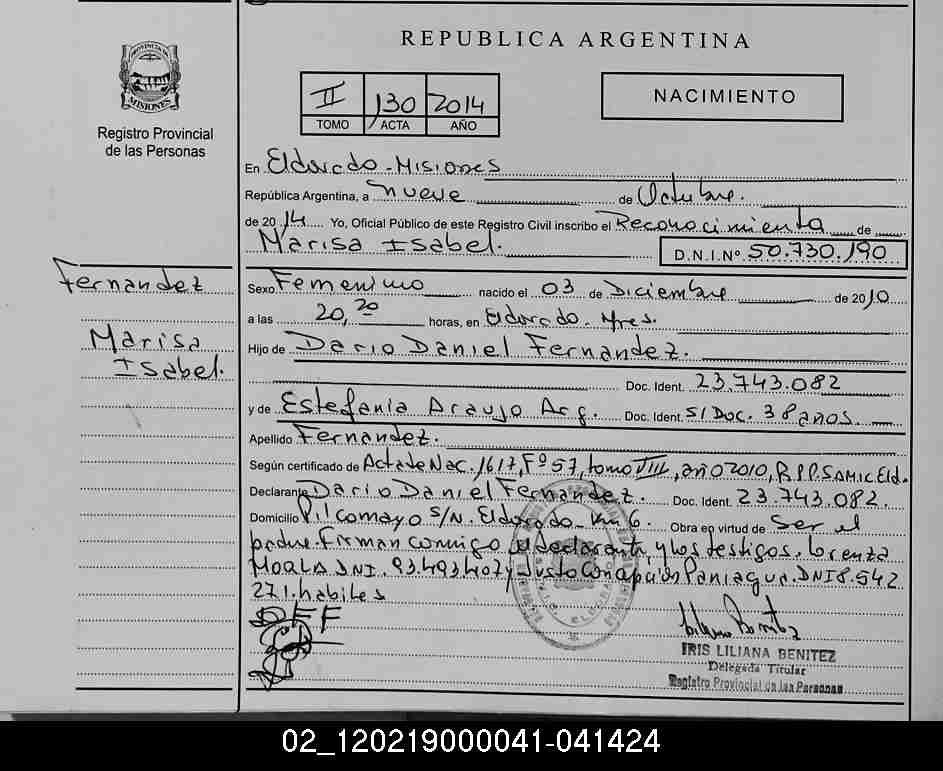 REPUBLICA ARGENTINA
PROVINCIA DE
MISIONES
Registro Provincial
de las Personas
II 130 2014
TOMO ACTA AÑO
NACIMIENTO
En Eldorado - Misiones
República Argentina, a nueve de Octubre.
de 2014. Yo, Oficial Público de este Registro Civil inscribo el Reconocimiento de
Marisa Isabel. D.N.I.Nº 50.730.190
Fernandez
Marisa
Isabel.
Sexo Femenino nacido el 03 de Diciembre de 2010
a las 20,20 horas, en Eldorado. Mnes.
Hijo de Dario Daniel Fernandez.
Doc. Ident. 23.743.082
y de Estefania Araujo Arg. Doc. Ident. S/Doc. 38 anos.
Apellido Fernandez.
Según certificado de Acta de Nac. 1617, Fº 57, tomo VIII, año 2010, R.P.P. SAMIC Eld.
Declarante Dario Daniel Fernandez. Doc. Ident. 23.743.082.
Domicilio Pilcomayo S/N. Eldorado - Km 6. Obra en virtud de Ser el
padre. Firman conmigo el declarante y los testigos. Lorenza
DNI. 93.493.407 y Justo Paniagua. DNI 8.542
271. habiles
DFF
IRIS LILIANA BENITEZ
Delegada Titular
Registro Provincial de las Personas
02_120219000041-041424